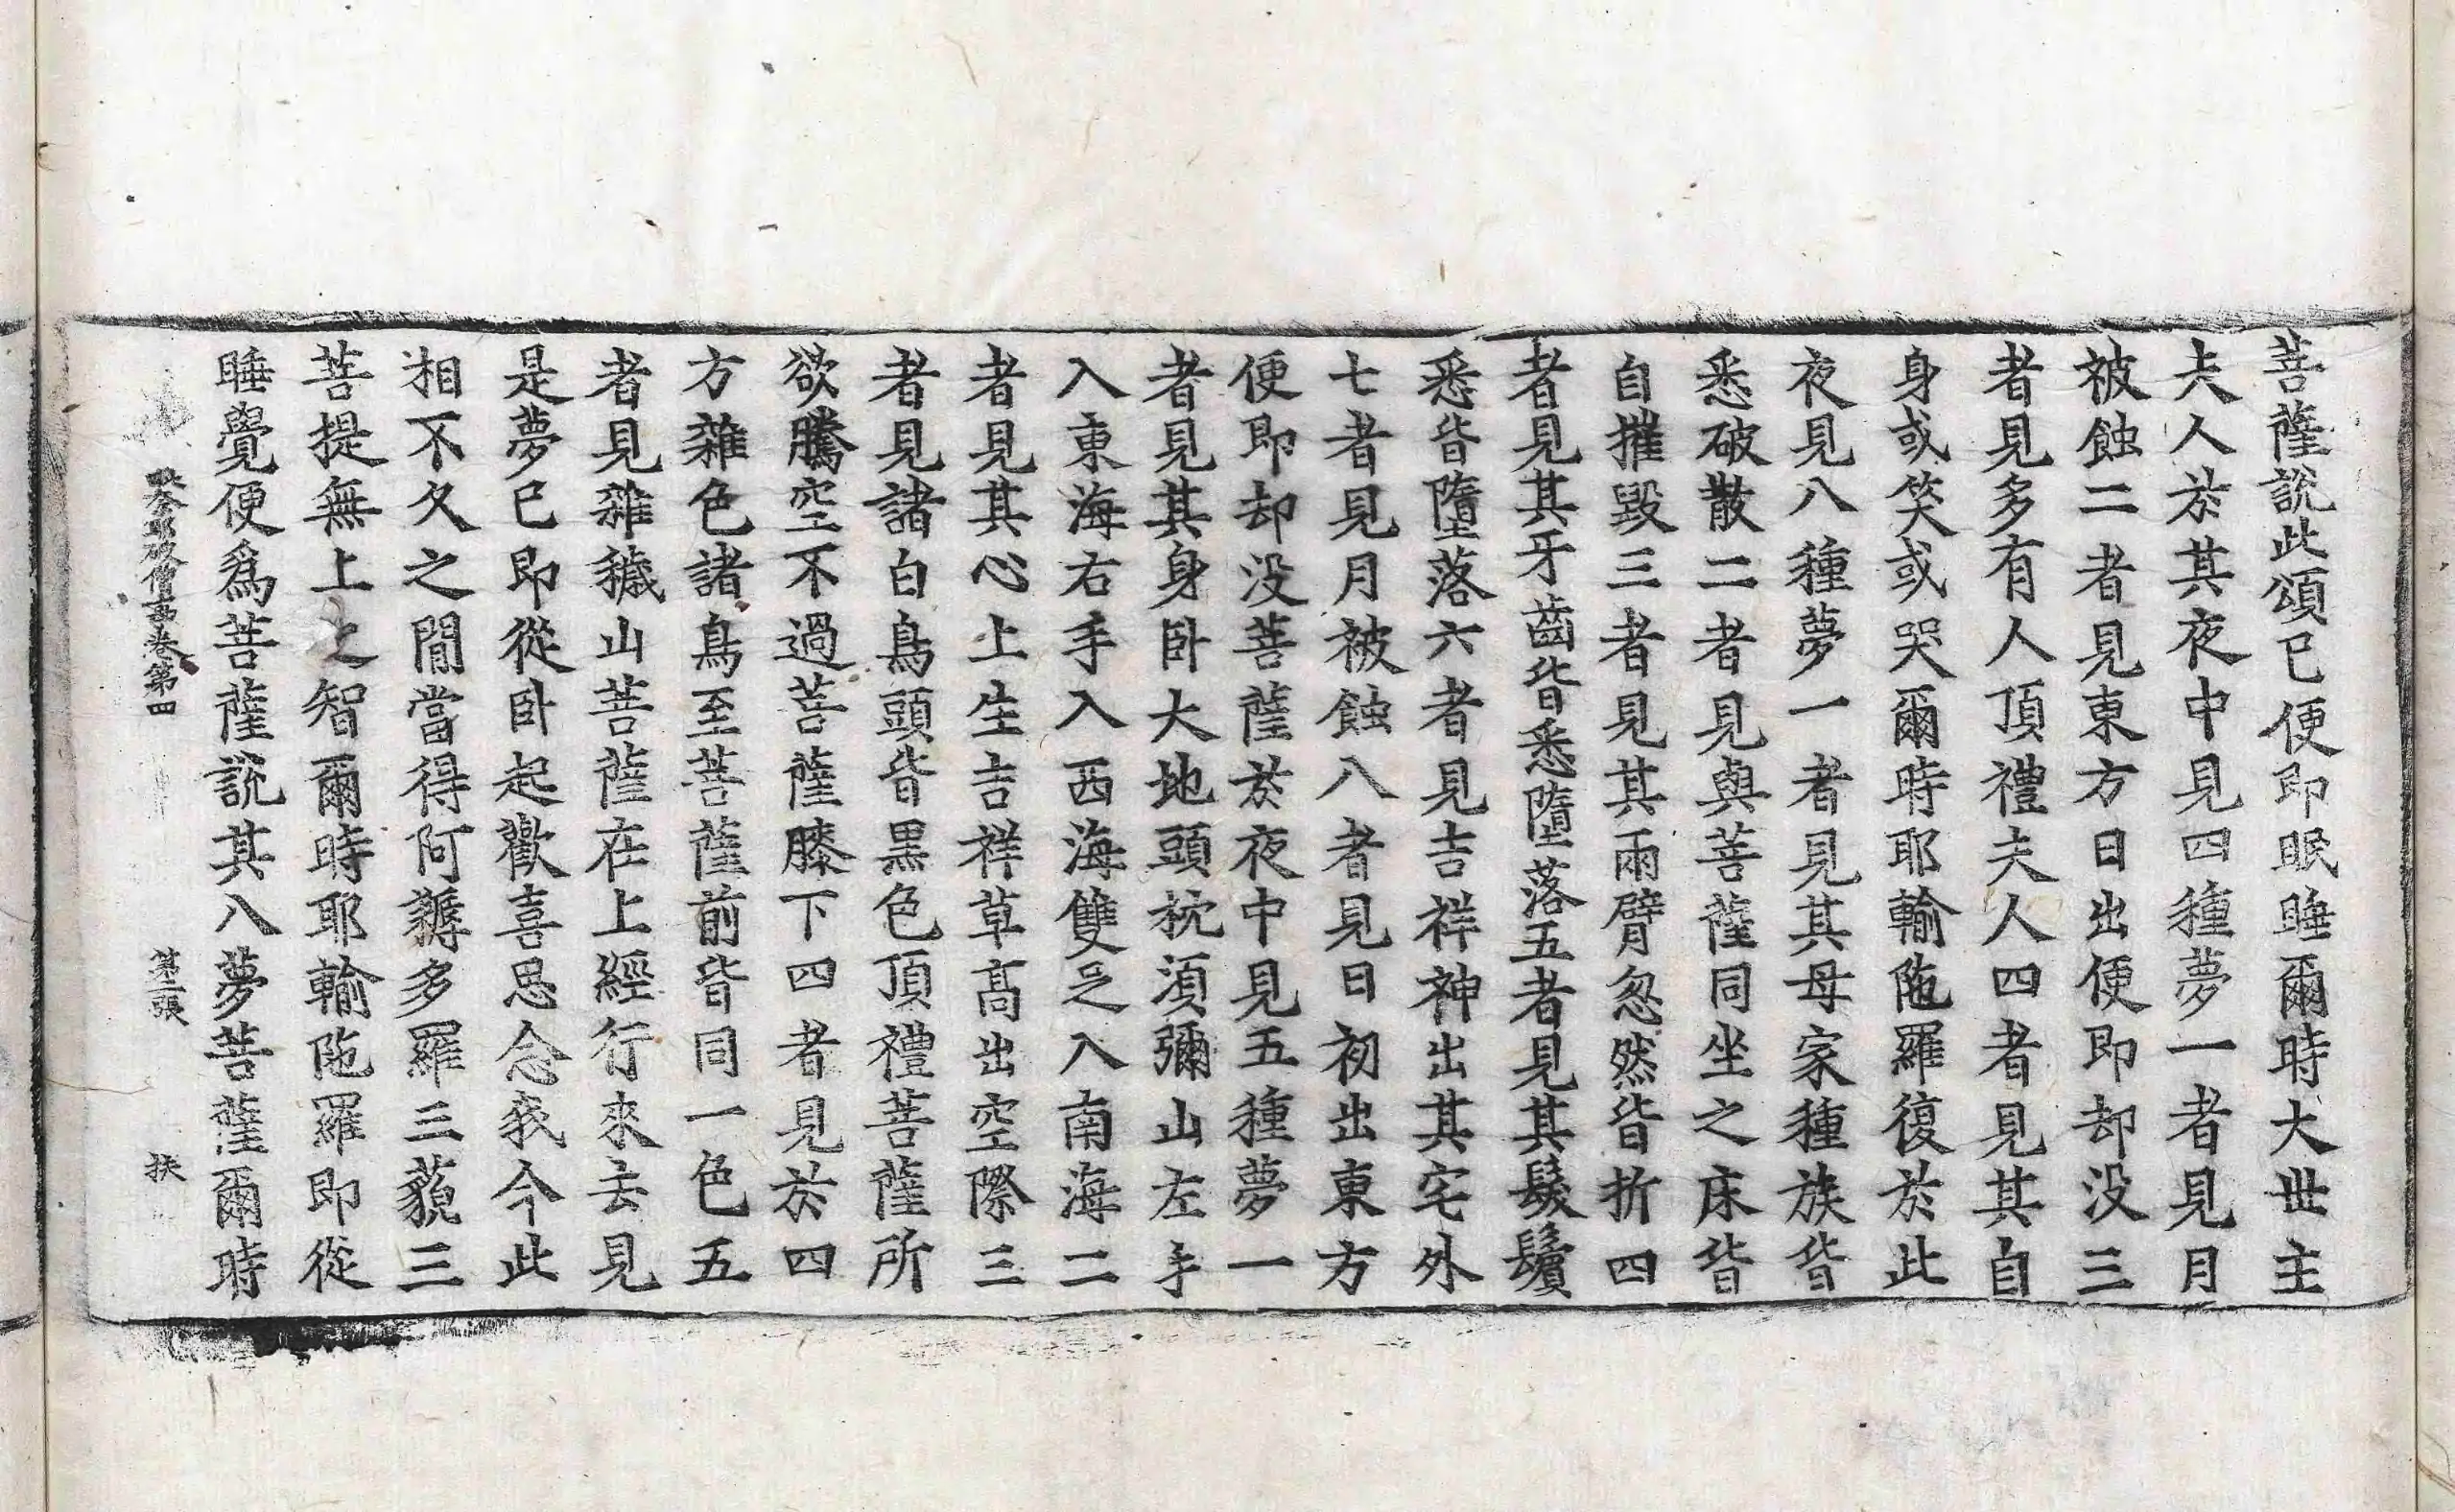 菩薩說此頌已便即眠睡爾時大世主
夫人於其夜中見四種夢一者見月
被蝕二者見東方日出便即却没三
者見多有人頂禮夫人四者見其自
身或笑或哭爾時耶輸陁羅復於此
夜見八種夢一者見其母家種族皆
悉破散二者見與菩薩同坐之床皆
自摧毀三者見其兩臂忽然皆折四
者見其牙齒皆悉墮落五者見其髮鬢
悉皆墮落六者見吉祥神出其宅外
七者見月被蝕八者見日初出東方
便即却没菩薩於夜中見五種夢一
者見其身卧大地頭枕須彌山左手
入東海右手入西海雙足入南海二
者見其心上生吉祥草高出空際三
者見諸白鳥頭皆黒色頂禮菩薩所
欲騰空不過菩薩膝下四者見於四
方雜色諸鳥至菩薩前皆同一色五
者見雜穢山菩薩在上經行來去見
是夢已即從卧起歡喜思念我今此
相不久之間當得阿耨多羅三藐三
菩提無上之智爾時耶輸陁羅即從
睡覺便爲菩薩說其八夢菩薩爾時
破僧事卷第四 第二張 扶